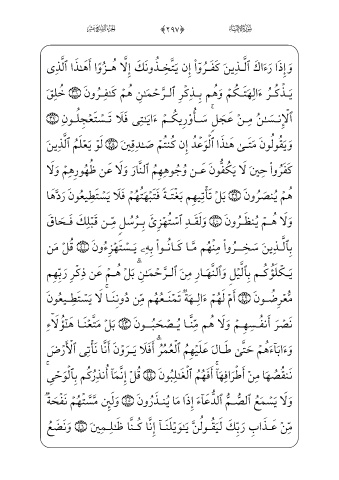 ﴿٢٩٧﴾
وَإِذَا رَءَاكَ ٱلَّذِينَ كَفَرُوٓا۟ إِن يَتَّخِذُونَكَ إِلَّا هُزُوًا أَهَٰذَا ٱلَّذِى
يَذْكُرُ ءَالِهَتَكُمْ وَهُم بِذِكْرِ ٱلرَّحْمَٰنِ هُمْ كَٰفِرُونَ ۝ خُلِقَ
ٱلْإِنسَٰنُ مِنْ عَجَلٍ ۚ سَأُو۟رِيكُمْ ءَايَٰتِى فَلَا تَسْتَعْجِلُونِ ۝
وَيَقُولُونَ مَتَىٰ هَٰذَا ٱلْوَعْدُ إِن كُنتُمْ صَٰدِقِينَ ۝ لَوْ يَعْلَمُ ٱلَّذِينَ
كَفَرُوا۟ حِينَ لَا يَكُفُّونَ عَن وُجُوهِهِمُ ٱلنَّارَ وَلَا عَن ظُهُورِهِمْ وَلَا
هُمْ يُنصَرُونَ ۝ بَلْ تَأْتِيهِم بَغْتَةً فَتَبْهَتُهُمْ فَلَا يَسْتَطِيعُونَ رَدَّهَا
وَلَا هُمْ يُنظَرُونَ ۝ وَلَقَدِ ٱسْتُهْزِئَ بِرُسُلٍ مِّن قَبْلِكَ فَحَاقَ
بِٱلَّذِينَ سَخِرُوا۟ مِنْهُم مَّا كَانُوا۟ بِهِۦ يَسْتَهْزِءُونَ ۝ قُلْ مَن
يَكْلَؤُكُم بِٱلَّيْلِ وَٱلنَّهَارِ مِنَ ٱلرَّحْمَٰنِ ۗ بَلْ هُمْ عَن ذِكْرِ رَبِّهِم
مُّعْرِضُونَ ۝ أَمْ لَهُمْ ءَالِهَةٌ تَمْنَعُهُم مِّن دُونِنَا ۚ لَا يَسْتَطِيعُونَ
نَصْرَ أَنفُسِهِمْ وَلَا هُم مِّنَّا يُصْحَبُونَ ۝ بَلْ مَتَّعْنَا هَٰٓؤُلَآءِ
وَءَابَآءَهُمْ حَتَّىٰ طَالَ عَلَيْهِمُ ٱلْعُمُرُ ۗ أَفَلَا يَرَوْنَ أَنَّا نَأْتِى ٱلْأَرْضَ
نَنقُصُهَا مِنْ أَطْرَافِهَآ ۚ أَفَهُمُ ٱلْغَٰلِبُونَ ۝ قُلْ إِنَّمَآ أُنذِرُكُم بِٱلْوَحْىِ ۚ
وَلَا يَسْمَعُ ٱلصُّمُّ ٱلدُّعَآءَ إِذَا مَا يُنذَرُونَ ۝ وَلَئِن مَّسَّتْهُمْ نَفْحَةٌ
مِّنْ عَذَابِ رَبِّكَ لَيَقُولُنَّ يَٰوَيْلَنَآ إِنَّا كُنَّا ظَٰلِمِينَ ۝ وَنَضَعُ